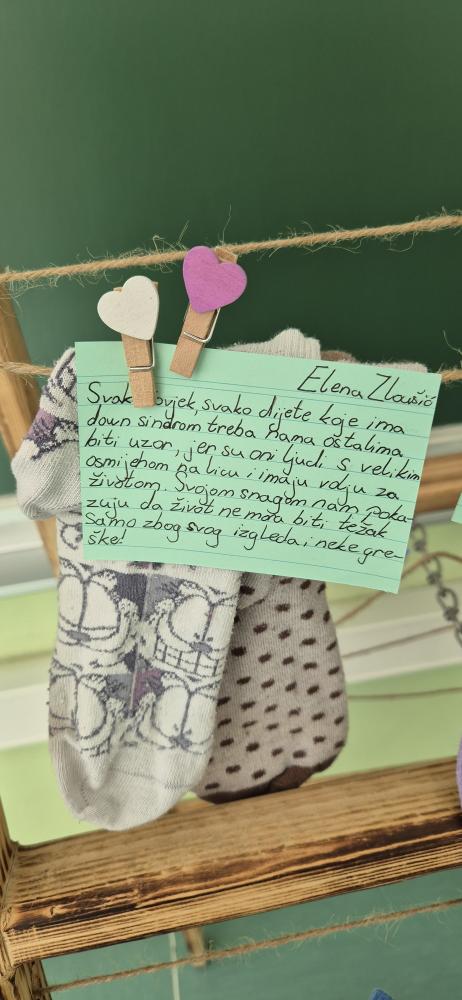 Elena Zlaušić
Svak ovjek, svako dijete koje ima
down sindrom treba nama ostalima
biti uzor, jer su oni ljudi s velikim
osmijehom na licu i imaju volju za
životom. Svojom snagom nam poka-
zuju da život ne mora biti težak
samo zbog svog izgleda i neke gre-
ške!